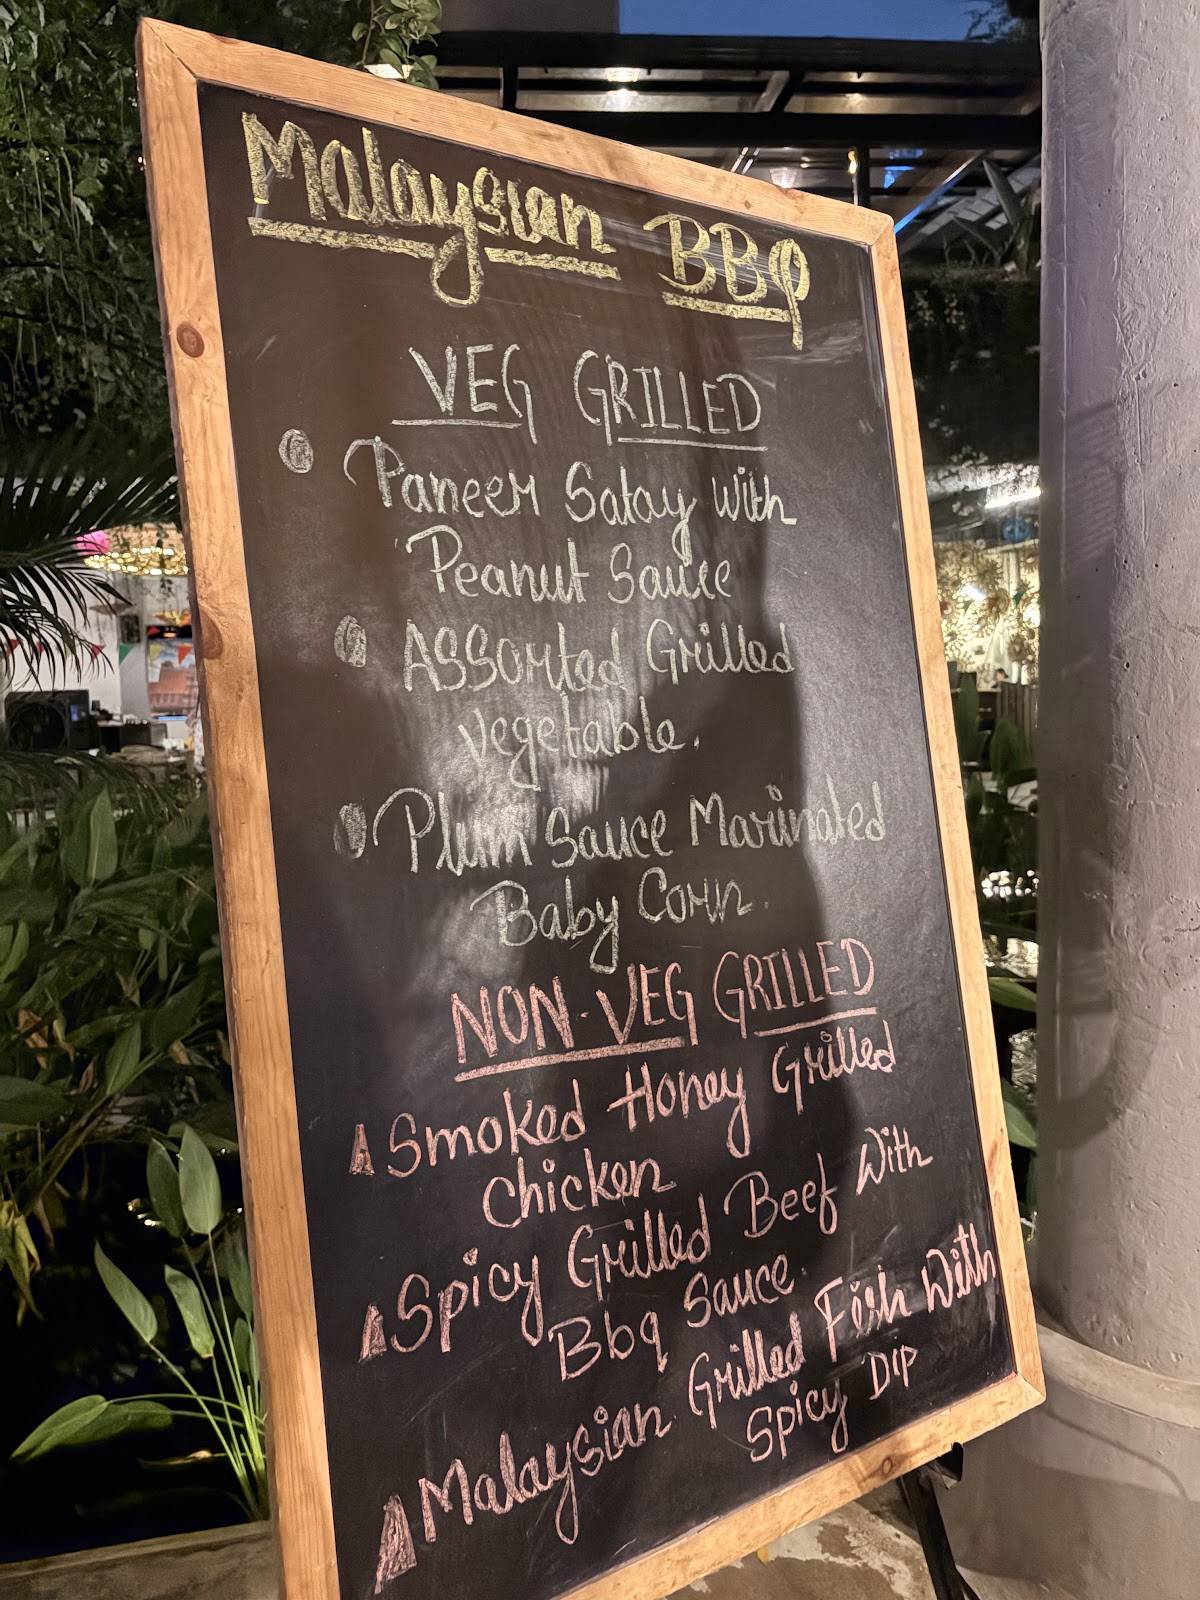 Malaysian BBQ
VEG GRILLED
Paneer Satay With
Peanut Sauce
Assorted Grilled
vegetable.
Plum Sauce Marinated
Baby Corn.
NON-VEG GRILLED
Smoked Honey Grilled
Chicken
Spicy Grilled Beef With
Bbq Sauce.
Malaysian Grilled Fish With
Spicy Dip